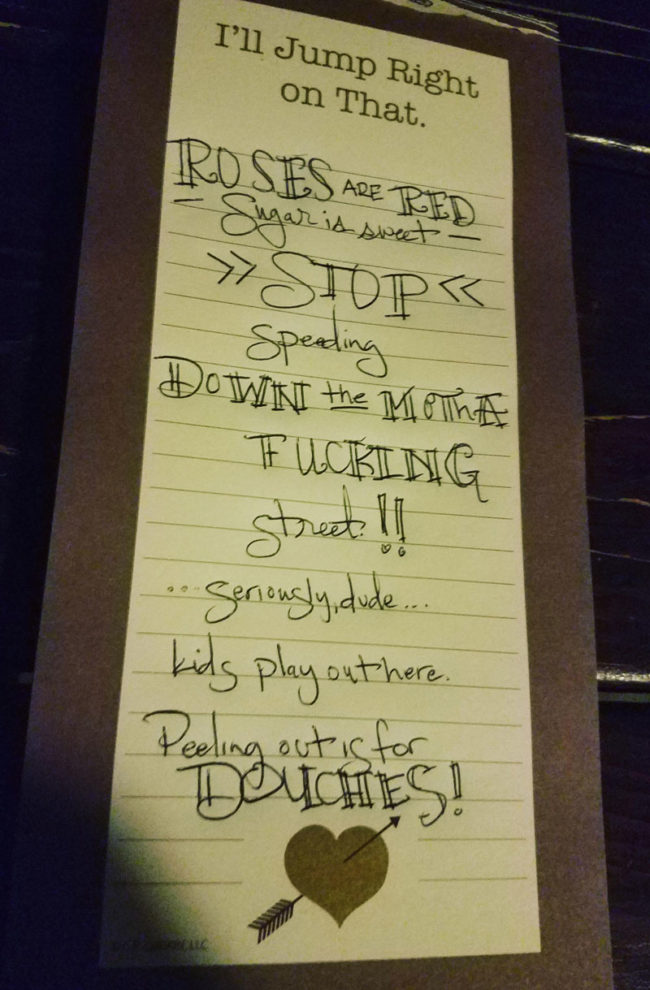 I'll Jump Right
on That.
ROSES ARE RED
— Sugar is sweet —
>> STOP <<
speeding
DOWN the MOThA
FUCKING
street!!
...seriously, dude...
kids play out here.
Peeling out is for
DOUCHES!
LLC